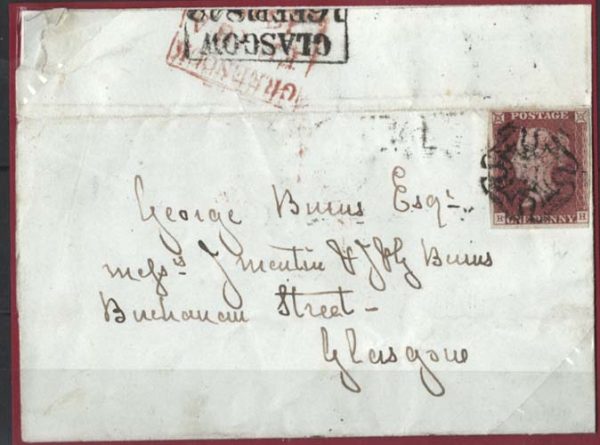 GLASGOW
POSTAGE
ONE PENNY
R H
George Burns Esqr
Messrs J Martin & J & G Burns
Buchanan Street
Glasgow